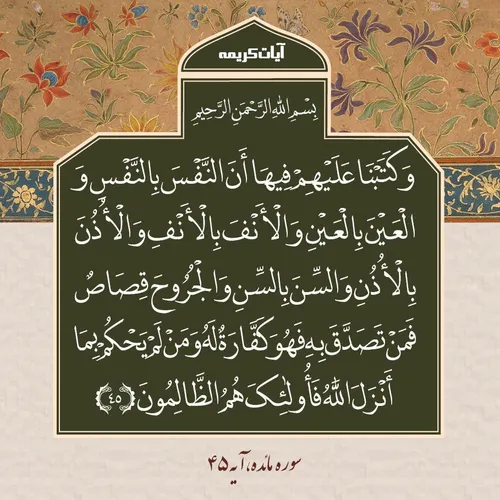 آیات کریمه
بِسْمِ اللهِ الرَّحْمَنِ الرَّحِیمِ
وَکَتَبْنَا عَلَیْهِمْ فِیهَا أَنَّ النَّفْسَ بِالنَّفْسِ وَ
الْعَیْنَ بِالْعَیْنِ وَالْأَنْفَ بِالْأَنْفِ وَالْأُذُنَ
بِالْأُذُنِ وَالسِّنَ بِالسِّنِ وَالْجُرُوحَ قِصَاصٌ
فَمَنْ تَصَدَّقَ بِهِ فَهُوَ کَفَّارَةٌ لَهُ وَمَنْ لَمْ یَحْکُمْ بِمَا
أَنْزَلَ اللهُ فَأُولَئِکَ هُمُ الظَّالِمُونَ ﴿۴۵﴾
سوره مائده، آیه ۴۵